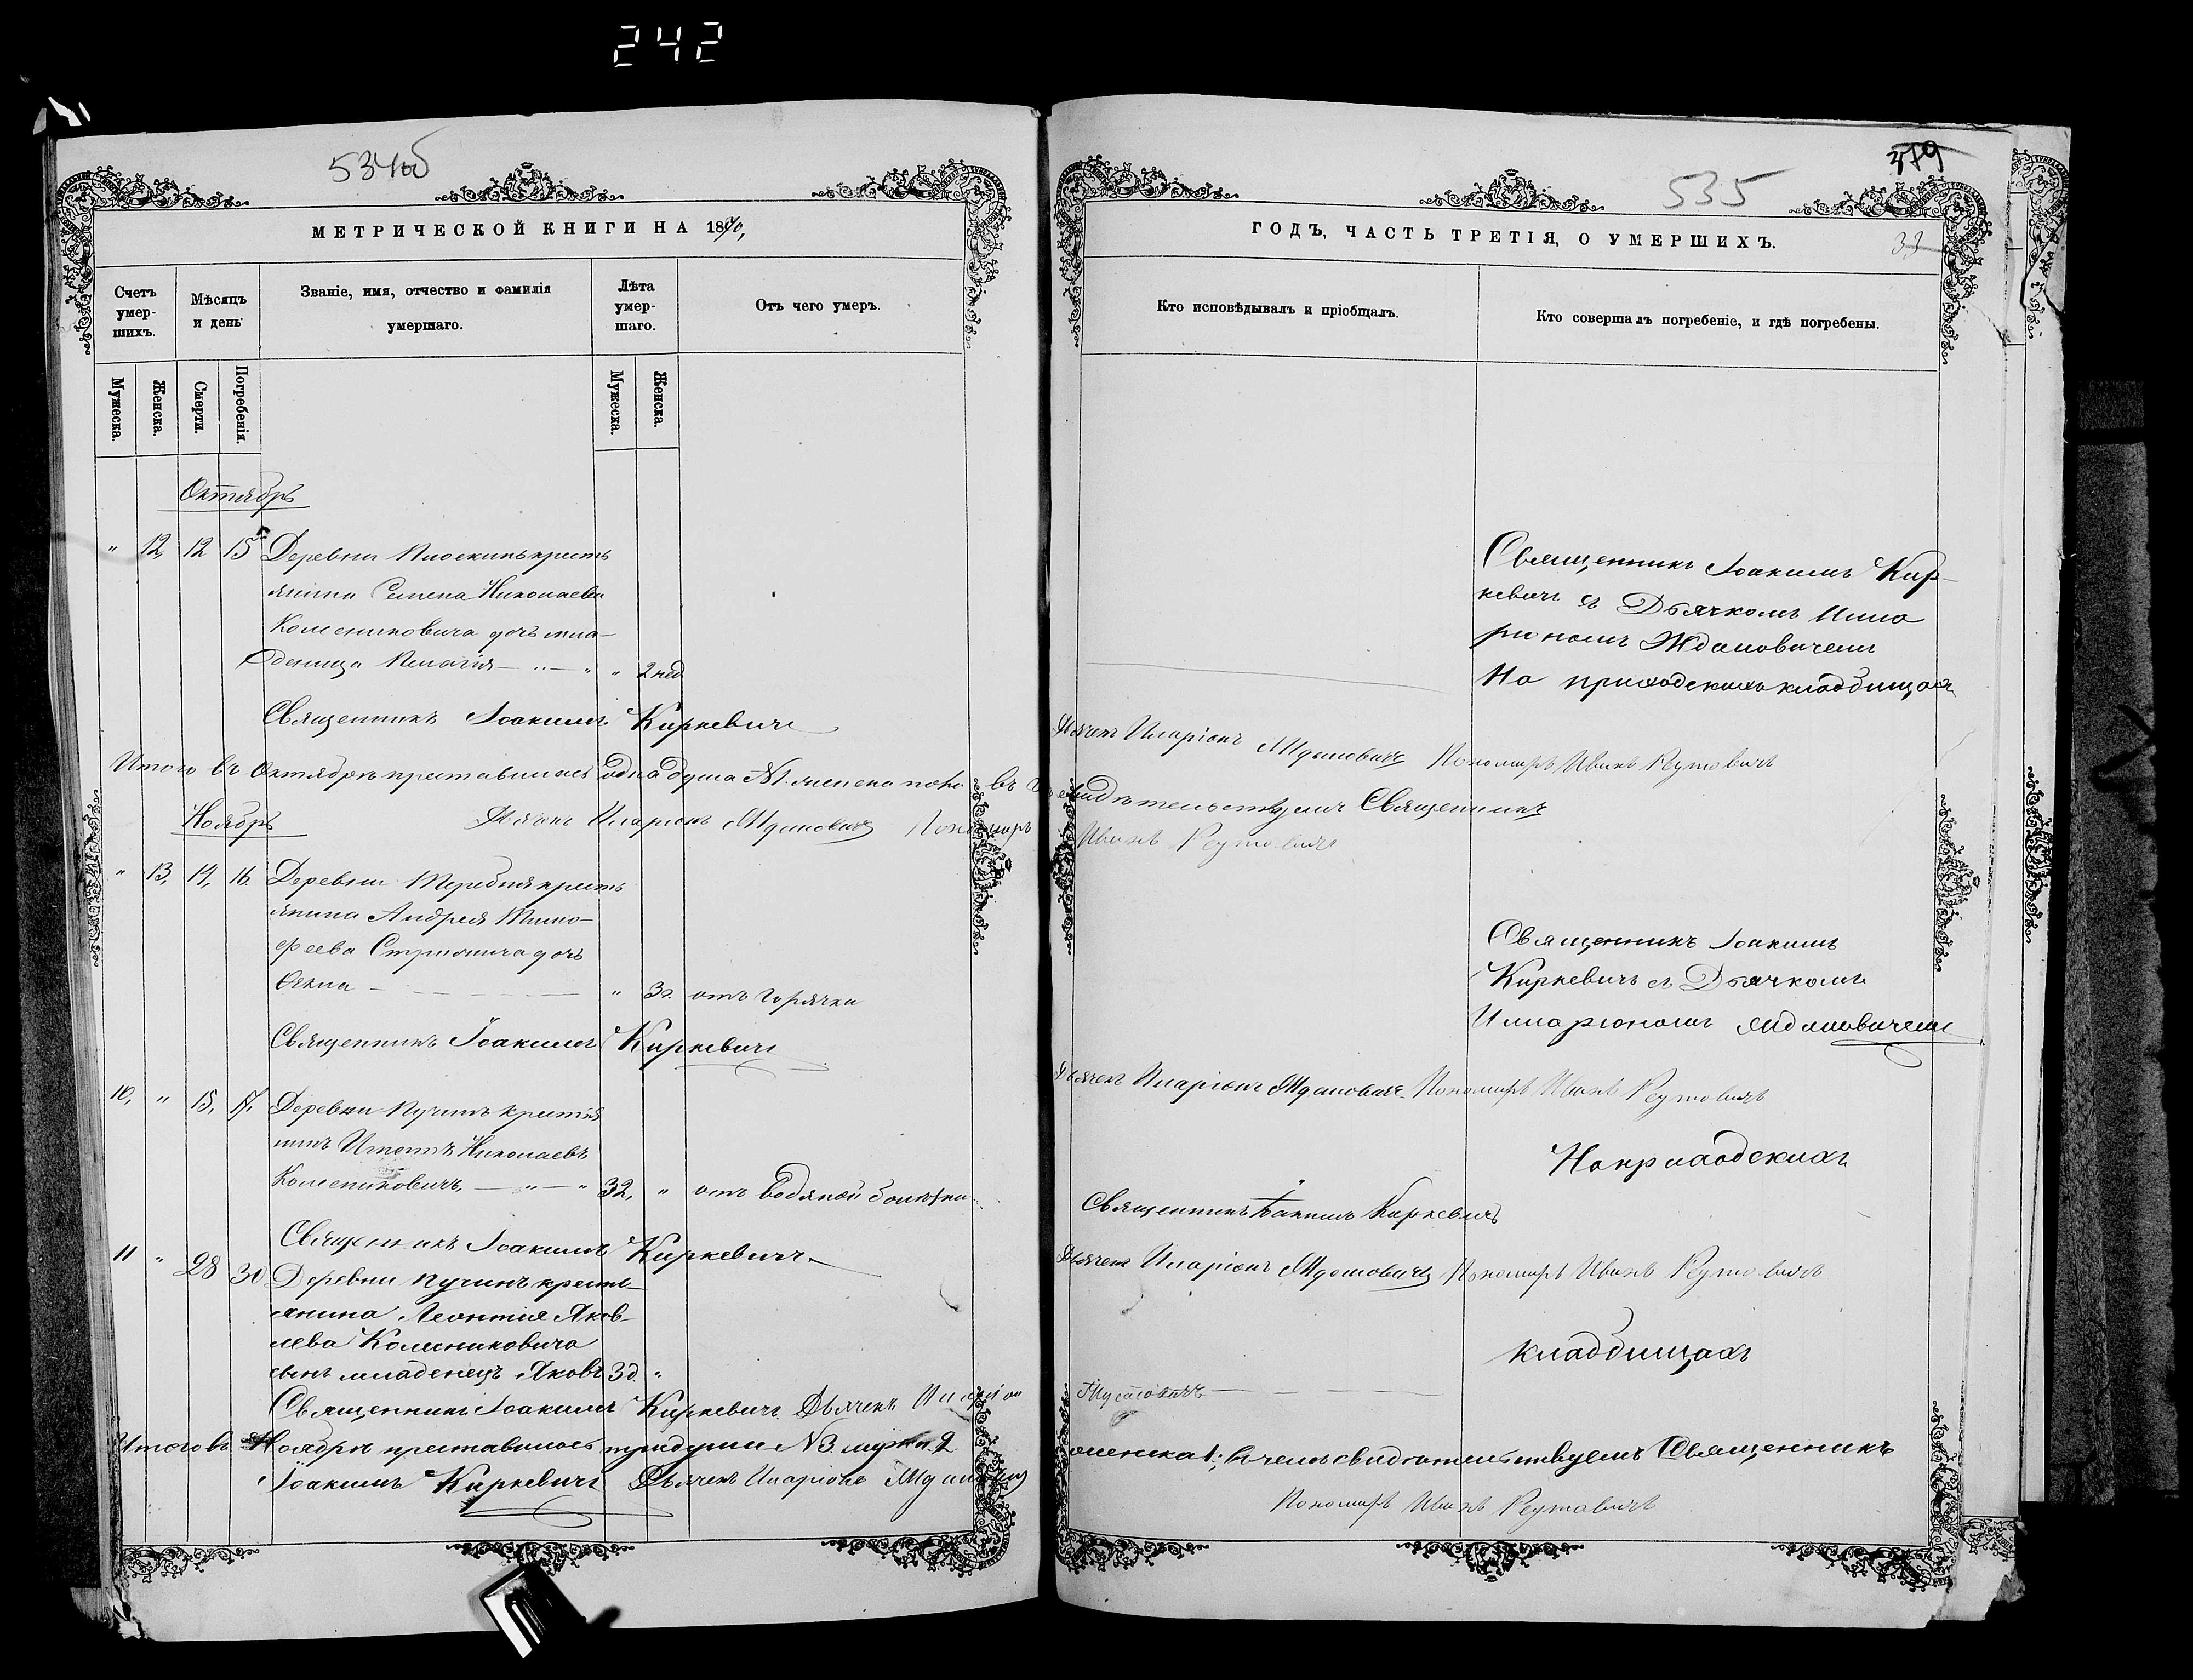 242
534об
МЕТРИЧЕСКОЙ КНИГИ НА 1870,
Счетъ умер-шихъ.
Мѣсяцъ и день
Званіе, имя, отчество и фамилія умершаго.
Лѣта умер-шаго.
Отъ чего умеръ.
Мужеска.
Женска.
Смерти.
Погребенія.
Мужеска.
Женска.
Октябрь
" 12, 12 15 Деревни кресть
янина Семена Николаева
Колесниковича дочь мла-
деница Пелагія " 2 нед
Священникъ Іоакимъ Киркевичъ
Итого въ Октябрѣ преставилась одна душа №1 женска пола въ
Ноябрь
Дьячекъ Иларіонъ Ждановичъ Пономарь
" 13, 14, 16. Деревни Теребня кресть
янина Андрея Тимо-
феева дочь
" 3 г. отъ горячки
Священникъ Іоакимъ Киркевичъ
10, " 15, 17. Деревни Пучинъ крестья
нинъ Николаевъ
Колесниковичъ " " 32, " отъ водяной болѣзни
Священникъ Іоакимъ Киркевичъ
11 " 28 30 Деревни Пучинъ кресть-
янина Леонтія Яков-
лева Колесниковича
сынъ младенецъ Яковъ 3 д. "
Священникъ Іоакимъ Киркевичъ Дьячекъ Иларіон
Итого въ Ноябрѣ преставилось три души №3 мужск. 2
Іоакимъ Киркевичъ Дьячекъ Иларіонъ Ждановичъ
379
535
ГОДЪ, ЧАСТЬ ТРЕТІЯ, О УМЕРШИХЪ.
33
Кто исповѣдывалъ и пріобщалъ.
Кто совершалъ погребеніе, и гдѣ погребены.
Священникъ Іоакимъ Кир-
кевичъ съ Дьячкомъ Ила
ріономъ Ждановичемъ
На приходскихъ кладбищахъ
Дьячекъ Иларіонъ Ждановичъ Пономарь Иванъ Реутовичъ
свидѣтельствуемъ Священникъ
Иванъ Реутовичъ
Священникъ Іоакимъ
Киркевичъ съ Дьячкомъ
Иларіономъ Ждановичемъ
Дьячекъ Иларіонъ Ждановичъ Пономарь Иванъ Реутовичъ
На приходскихъ
Священникъ Іоакимъ Киркевичъ
Дьячекъ Иларіонъ Ждановичъ Пономарь Иванъ Реутовичъ
кладбищахъ
Ждановичъ
женска 1; в чемъ свидѣтельствуемъ Священникъ
Пономарь Иванъ Реутовичъ